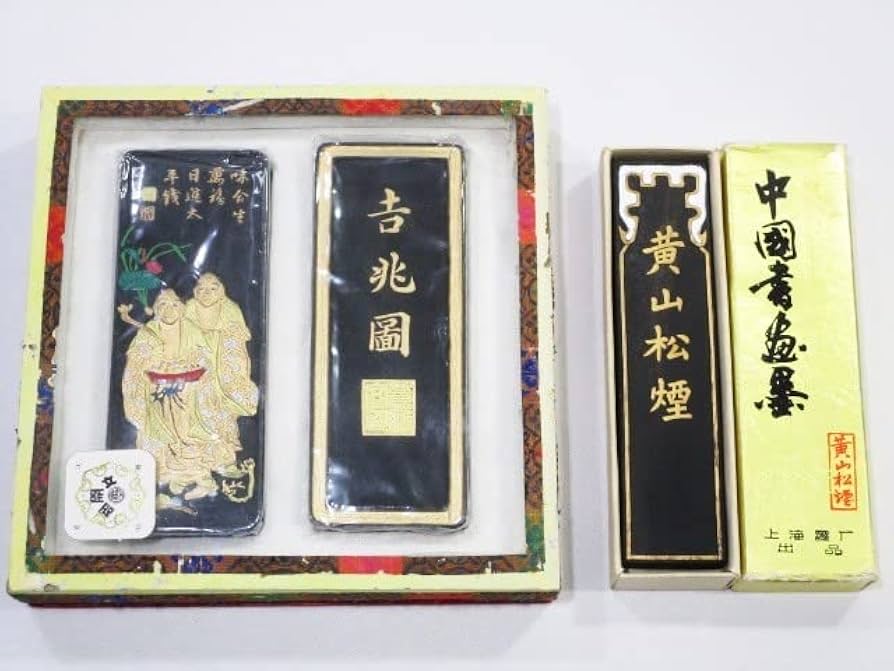 味合生
萬福
日進大
年錢
吉兆圖
黄山松煙
中國書画墨
黄山松煙
上海墨厂
出品